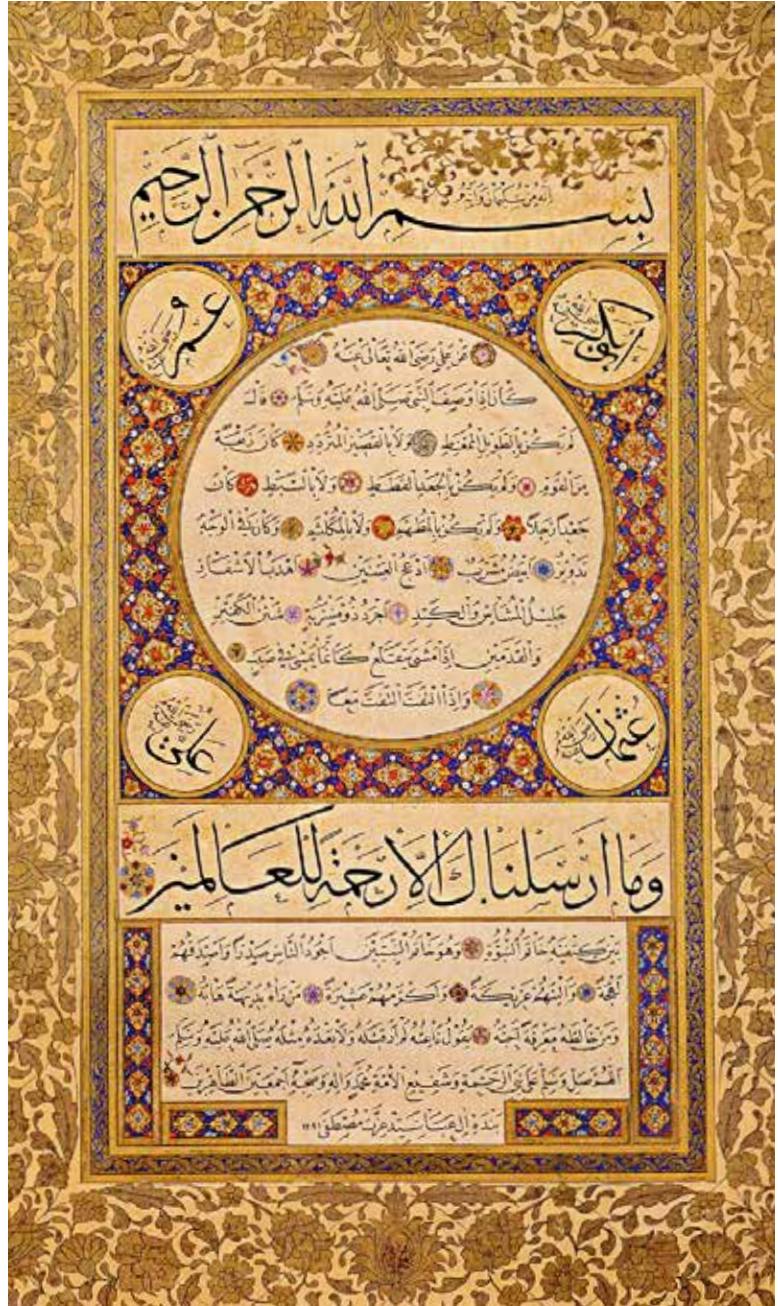 بِسْمِ اللّٰهِ الرَّحْمٰنِ الرَّحِيمِ
إنه من سليمان وإنه
أبو بكر رضي الله عنه
عمر رضي الله عنه
عن علي رضي الله تعالى عنه
كان إذا وصف النبي صلى الله عليه وسلم قال
لم يكن بالطويل الممغط ولا بالقصير المتردد كان ربعة
من القوم ولم يكن بالجعد القطط ولا بالسبط كان
جعدا رجلا ولم يكن بالمطهم ولا بالمكلثم وكان في الوجه
تدوير أبيض مشرب أدعج العينين أهدب الأشفار
جليل المشاش والكتد أجرد ذو مسربة شثن الكفين
والقدمين إذا مشى يتقلع كأنما يمشي في صبب
وإذا التفت التفت معا
عثمان رضي الله عنه
علي رضي الله عنه
وما أرسلناك إلا رحمة للعالمين
بين كتفيه خاتم النبوة وهو خاتم النبيين أجود الناس صدرا وأصدقهم
لهجة وألينهم عريكة وأكرمهم عشيرة من رآه بديهة هابه
ومن خالطه معرفة أحبه يقول ناعته لم أر قبله ولا بعده مثله صلى الله عليه وسلم
اللهم صل وسلم على نبي الرحمة وشفيع الأمة محمد وآله وصحبه أجمعين الطاهرين
بنده آل عبا سيد عزت مصطفى